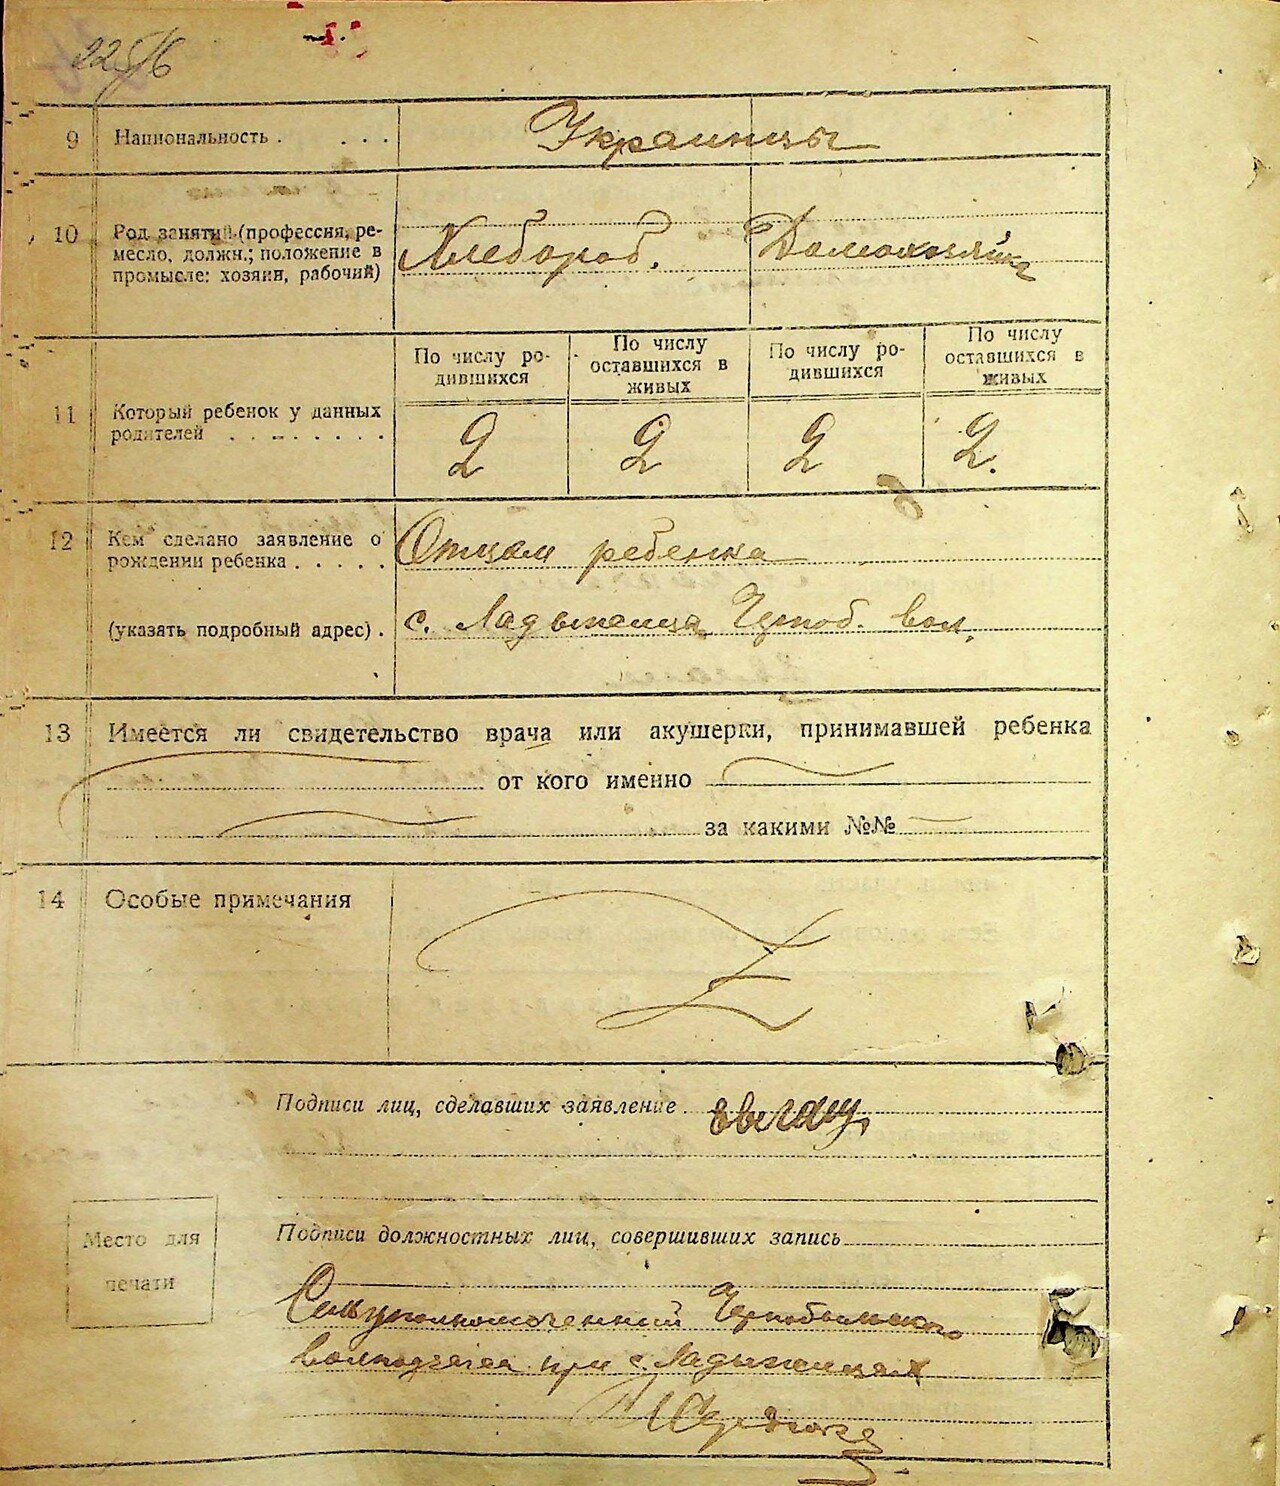 9 Национальность . . . . Украинцы
10 Род занятий (профессия, ре-
месло, должн.; положение в
промысле: хозяин, рабочий)
Хлебороб. Домохозяйка
По числу ро-
дившихся
По числу
оставшихся в
живых
По числу ро-
дившихся
По числу
оставшихся в
живых
11 Который ребенок у данных
родителей . . . . . . . .
2 2 2 2.
12 Кем сделано заявление о
рождении ребенка . . . . .
Отцом ребенка
(указать подробный адрес) . с. Ладыжица Черноб. вол.
13 Имеется ли свидетельство врача или акушерки, принимавшей ребенка
от кого именно
за какими №№
14 Особые примечания
Подписи лиц, сделавших заявление
Подписи должностных лиц, совершивших запись
Место для
печати
Сельуполномоченный Чернобыльского
при с. Ладыжицах